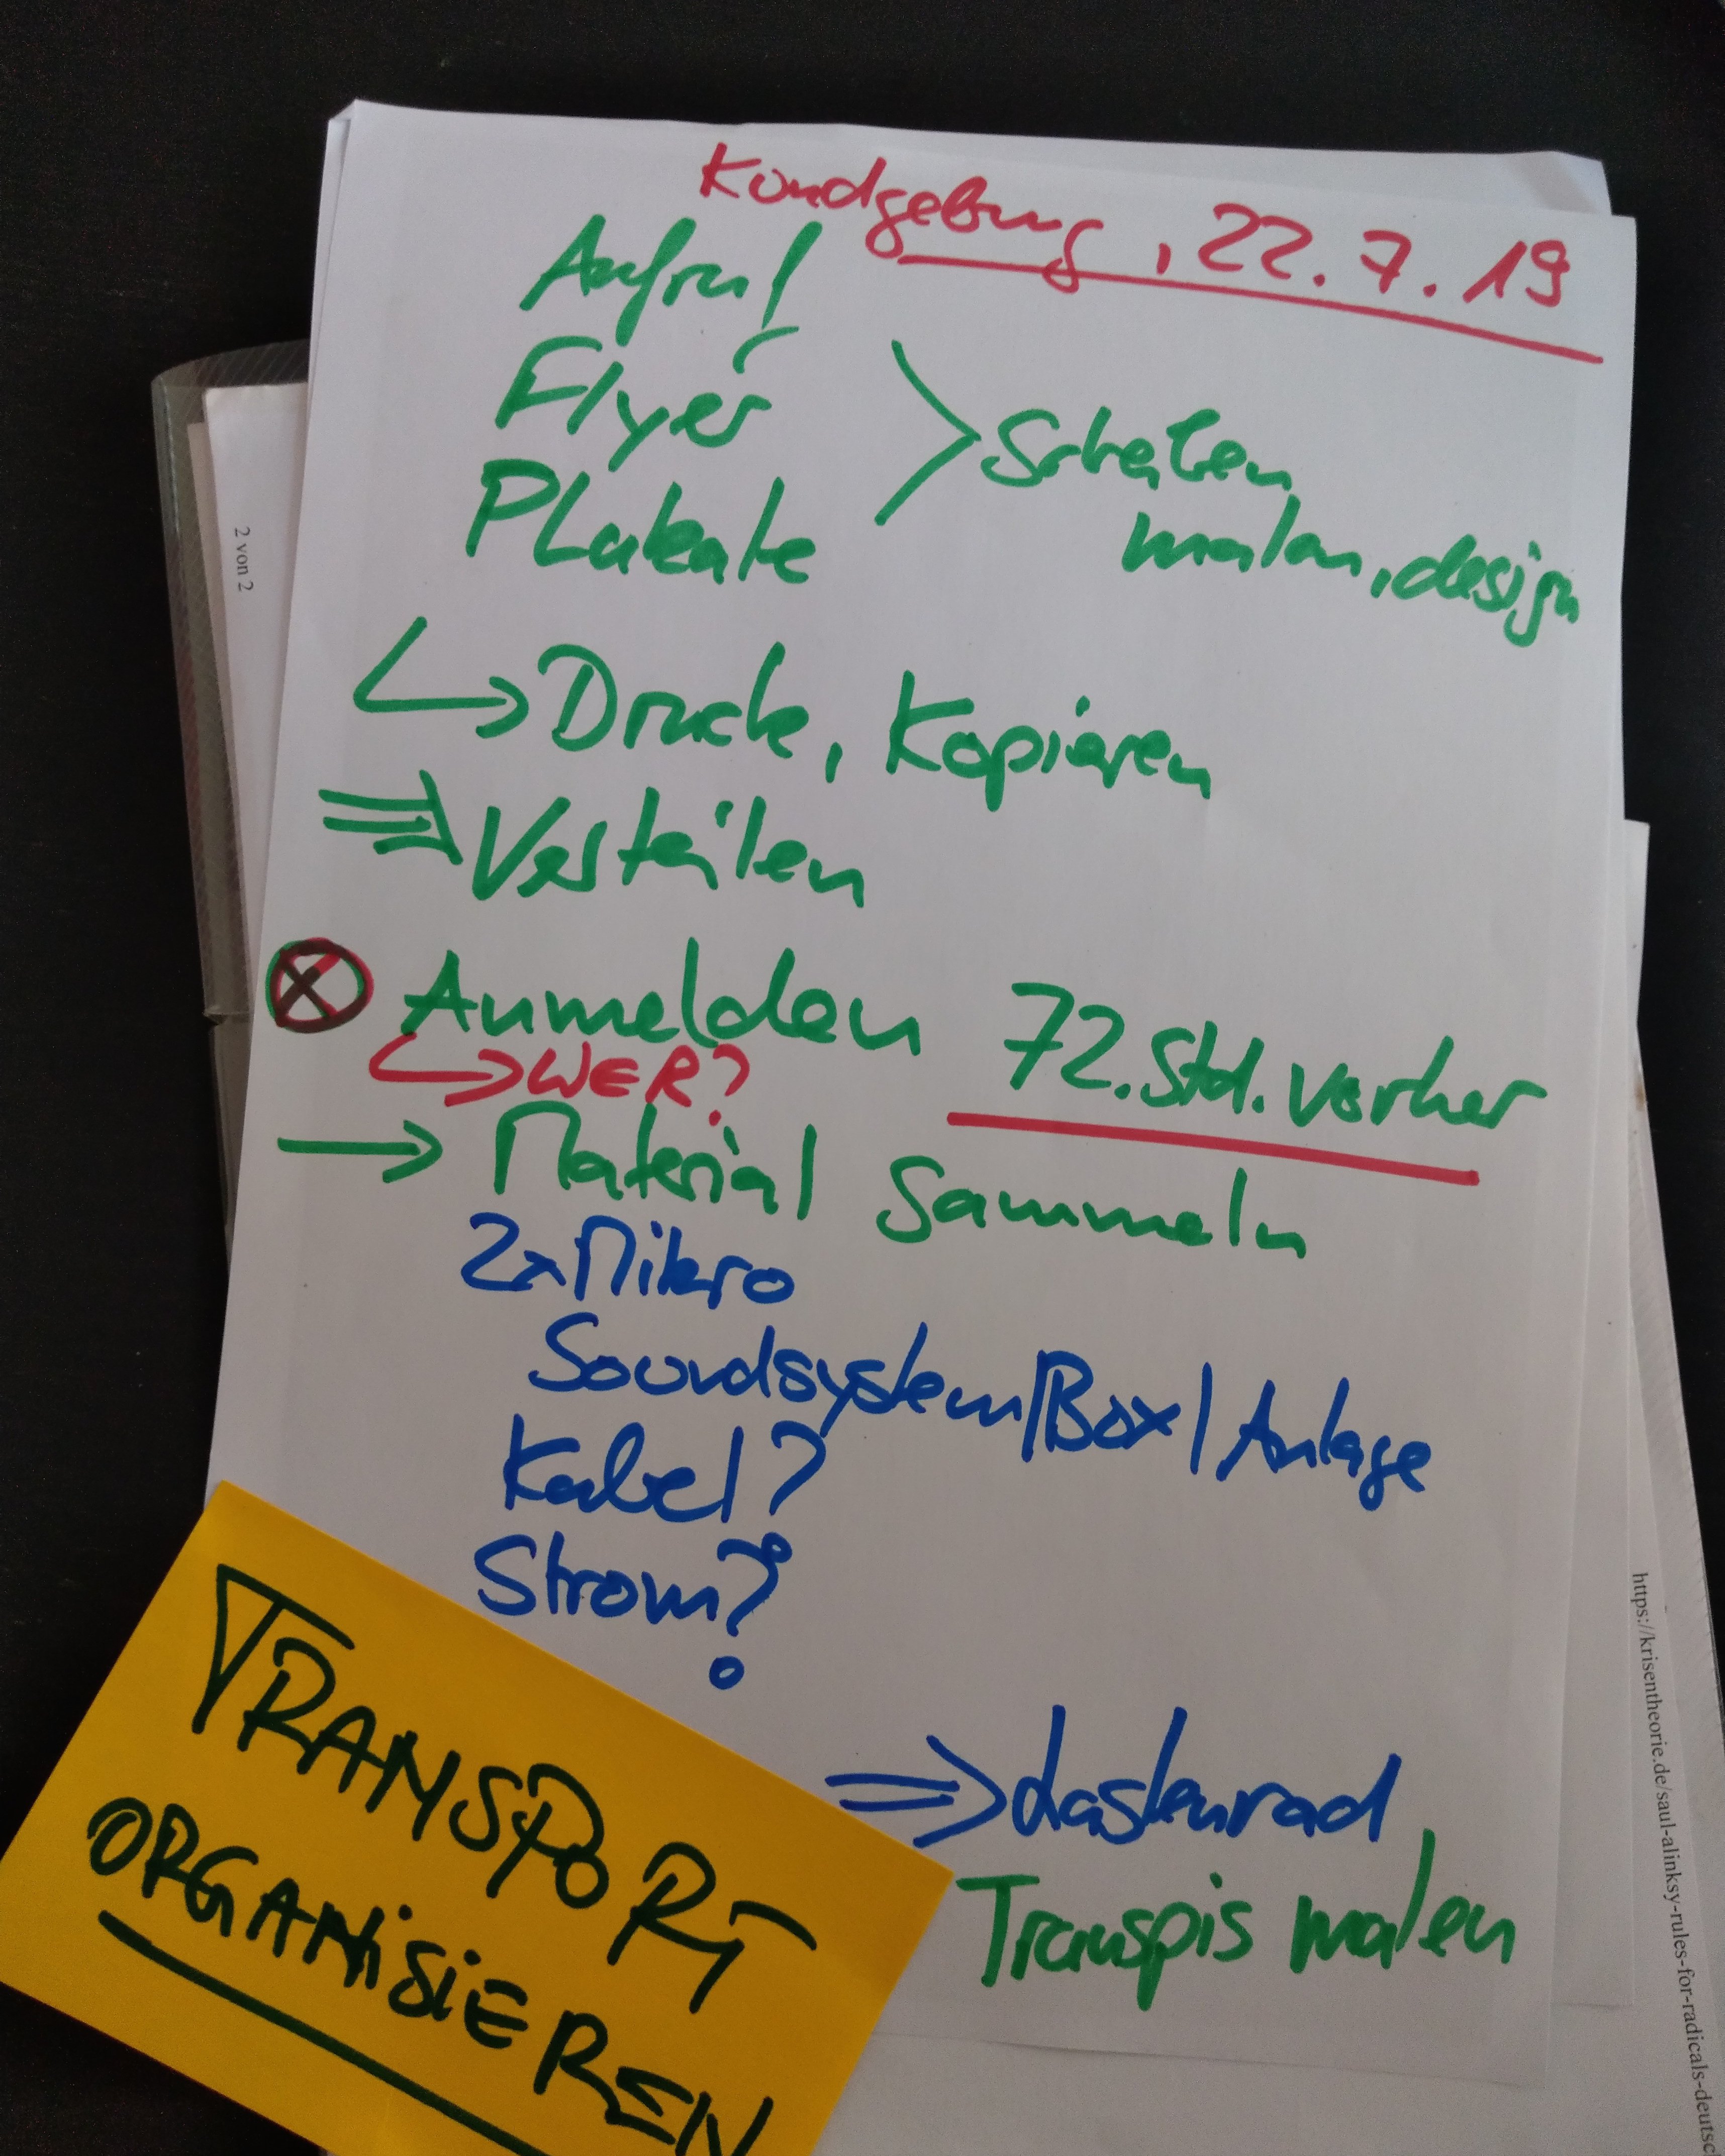 Kundgebung, 22.7.19
Aufruf
Flyer
Plakate
> Schreiben,
malen, design
↳ Druck, Kopieren
⇒ Verteilen
⊗ Anmelden 72. Std. vorher
↳ WER?
→ Material Sammeln
2x Mikro
Soundsystem/Box/Anlage
Kabel?
Strom?
⇒ Lastenrad,
Transpis malen
TRANSPORT
ORGANiSiEREN
2 von 2
https://krisentheorie.de/saul-alinksy-rules-for-radicals-deutsc